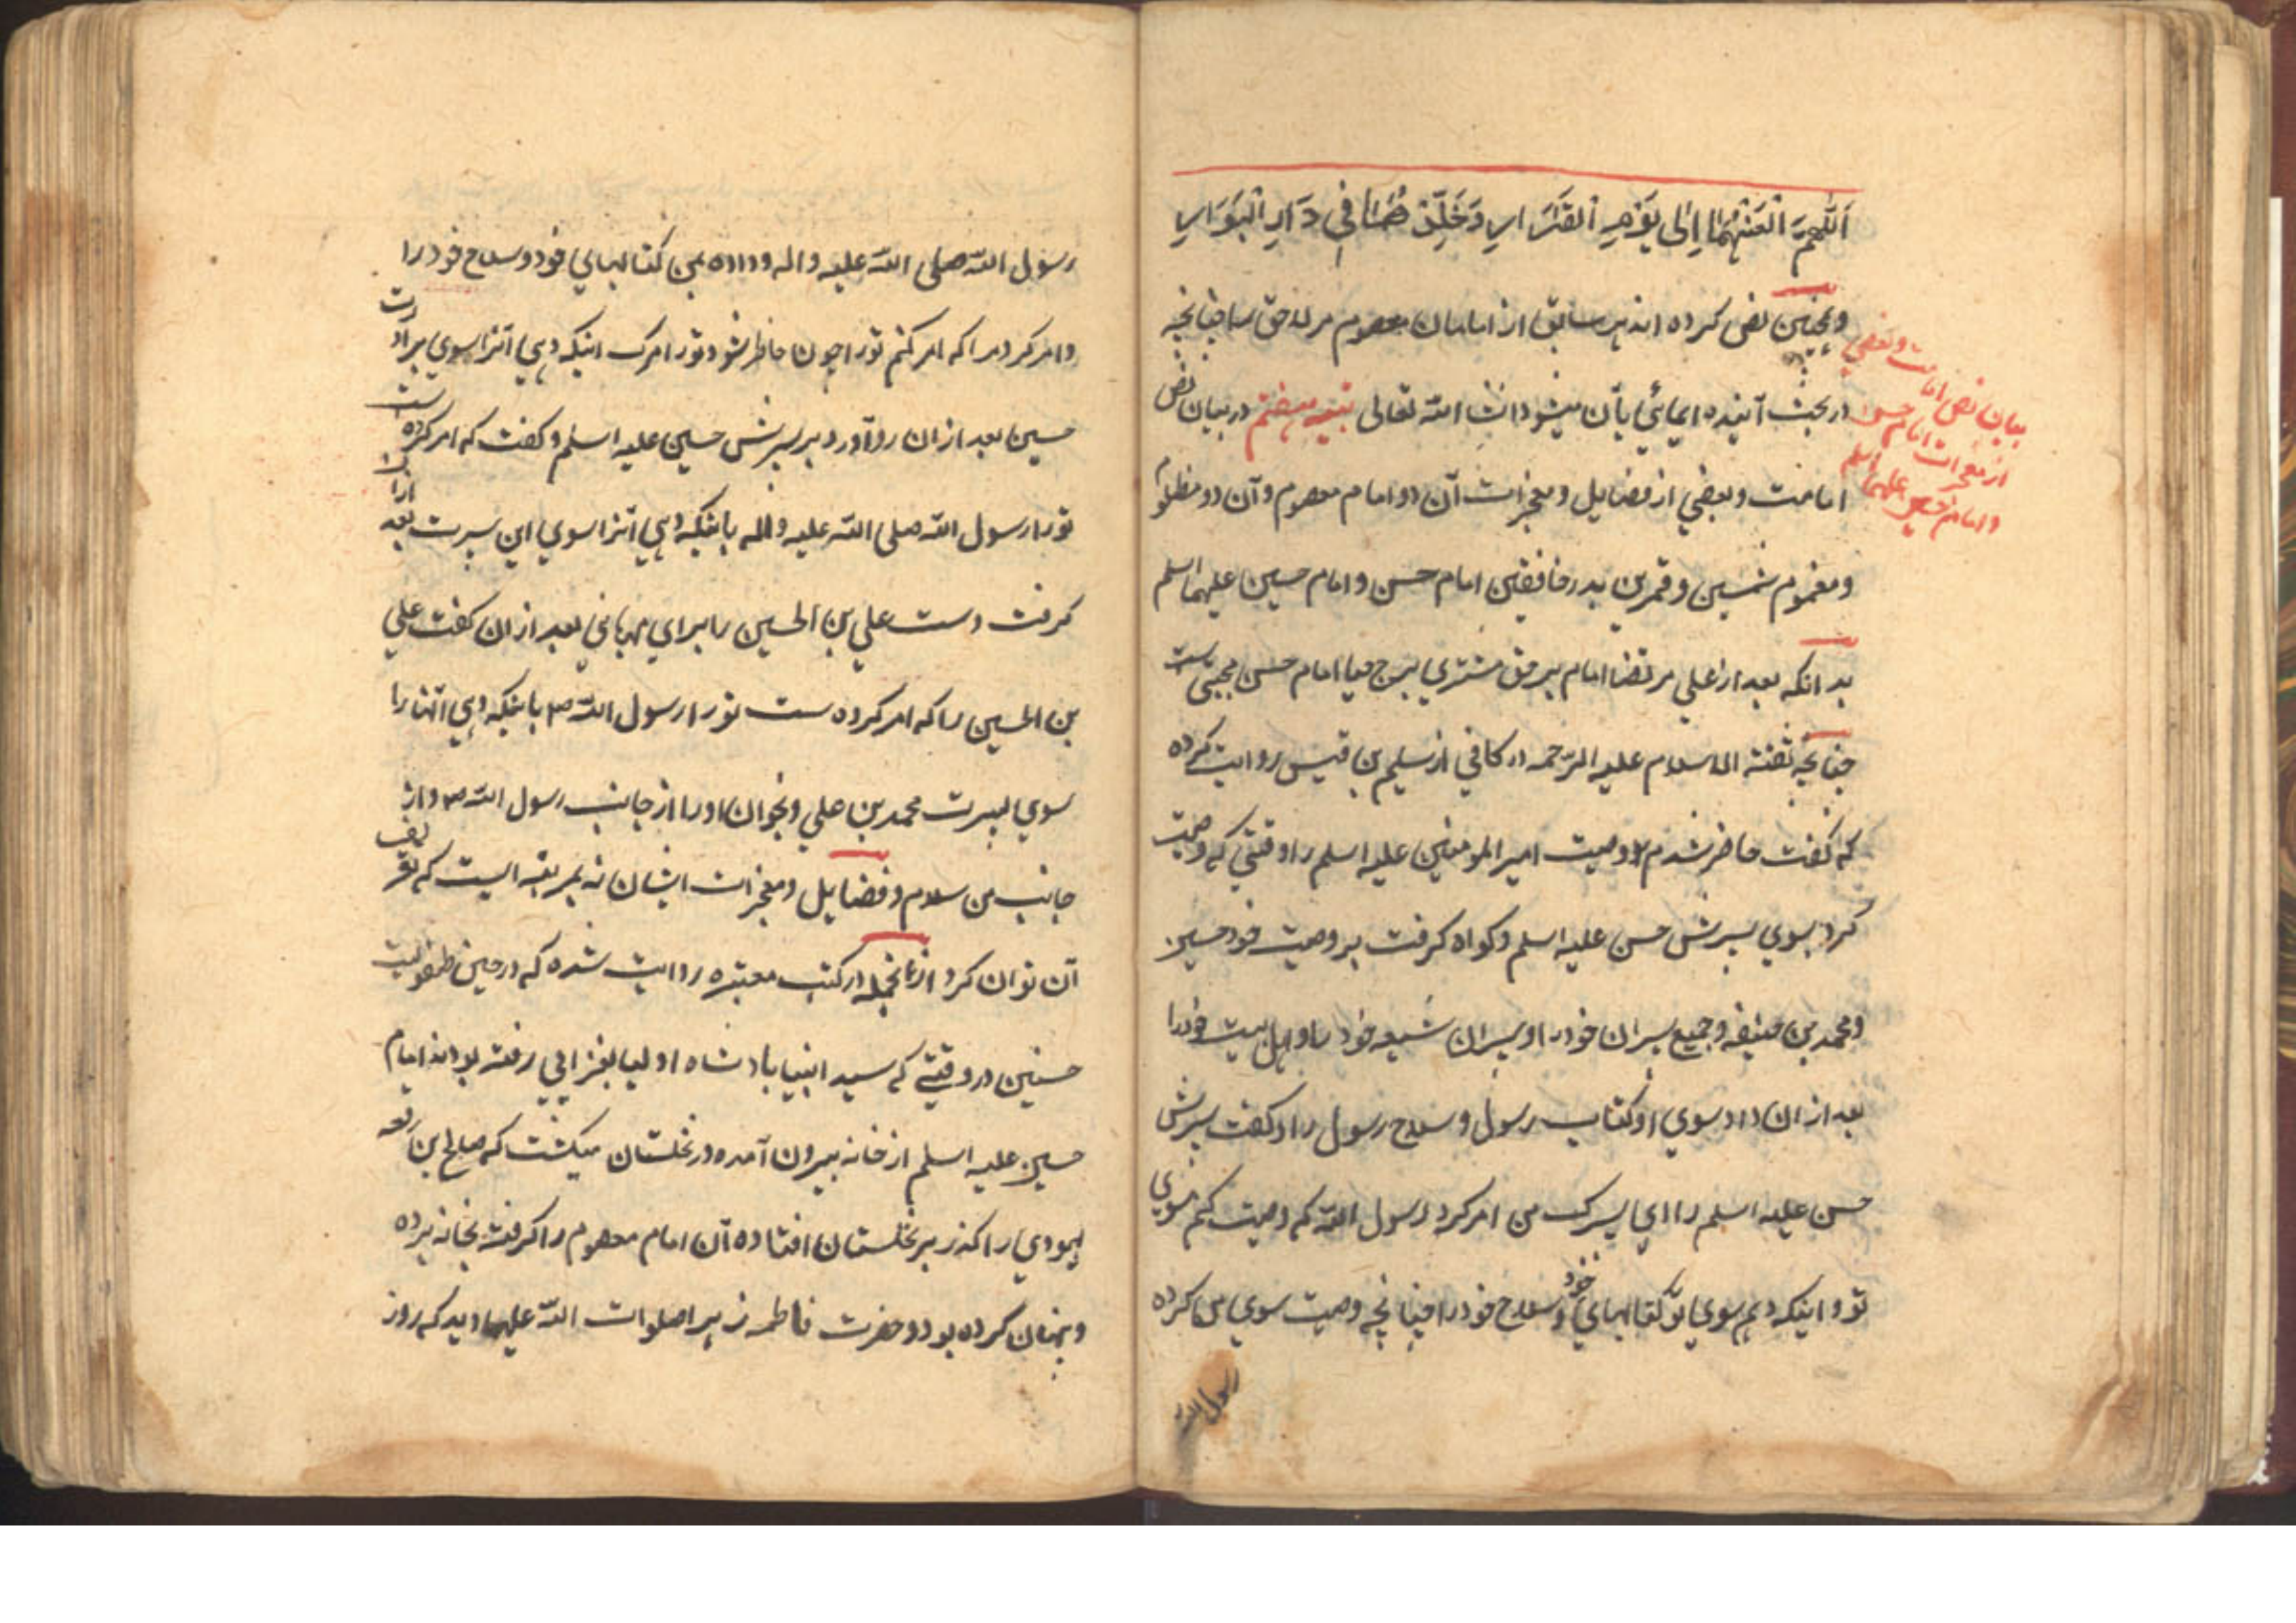 اَللّهمَّ الْعَنْهُمَا اِلٰی یَوْمِ الْقَرَارِ وَخَلِّدْهُمَا فِی دَارِ الْبَوَارِ
وهمچنین نص کرده اند هر سابق از امامان معصوم مر لاحق را چنانچه
در بحث آینده ایمائی بآن میشود انشا الله تعالی تتمه هفتم در بیان نص
امامت و بعضی از فضایل و معجزات آن دو امام معصوم و آن دو مظلوم
و مغموم شمسین و قمرین بدر خافقین امام حسن و امام حسین علیهما السلم
بدانکه بعد از علی مرتضا امام برحق مشتری برج حیا امام حسن مجتبی ست
چنانچه ثقة الاسلام علیه الرحمه در کافی از سلیم بن قیس روایت کرده
که گفت حاضر شدم وصیت امیر المومنین علیه السلم را وقتی که وصیت
کرد بسوی پسرش حسن علیه السلم و کواه کرفت بر وصیت خود حسین
و محمد بن حنیفه و جمیع پسران خود را و پسران شیعه خود را و اهل بیت خود را
بعد از ان داد سوی او کتاب رسول و سلاح رسول را و کفت پسرش
حسن علیه السلم را ای پسرک من امر کرد رسول الله که وصیت کنم بسوی
تو و اینکه دهم سوی تو کتابهای خود و سلاح خود را چنانچه وصیت سوی من کرده
رسول الله
بیان نص امامت و بعضی
از معجزات امام حسن
و امام حسین علیهما السلم
رسول الله صلی الله علیه و اله و داده بمن کتابهای خود و سلاح خود را
و امر کرد مرا که امر کنم تو را چون حاظر شود تو را مرک اینکه دهی آنرا سوی برادرت
حسین بعد از ان رو آورد بر پسرش حسین علیه السلم و کفت که امر کرده است
تو را رسول الله صلی الله علیه و اله باینکه دهی آنرا سوی این پسرت بعد ازان
کرفت دست علی بن الحسین را برای مهربانی بعد از ان کفت علی
بن الحسین را که امر کرده ست تو را رسول الله ص باینکه دهی انها را
سوی پسرت محمد بن علی و بخوان او را از جانب رسول الله ص و از
جانب من سلام و فضایل و معجزات ایشان نه بمرتبه ایست که تعریف
آن توان کرد ازانجمله در کتب معتبره روایت شده که در حین طفولیت
حسنین در وقتی که سید انبیا پادشاه اولیا بغزایی رفته بودند امام
حسین علیه السلم از خانه بیرون آمده در نخلستان میکشت که صالح بن رقعه
یهودی را کذر بر نخلستان افتاده آن امام معصوم را کرفته بخانه برده
و پنهان کرده بود و حضرت فاطمه زهرا صلوات الله علیها دید که روز